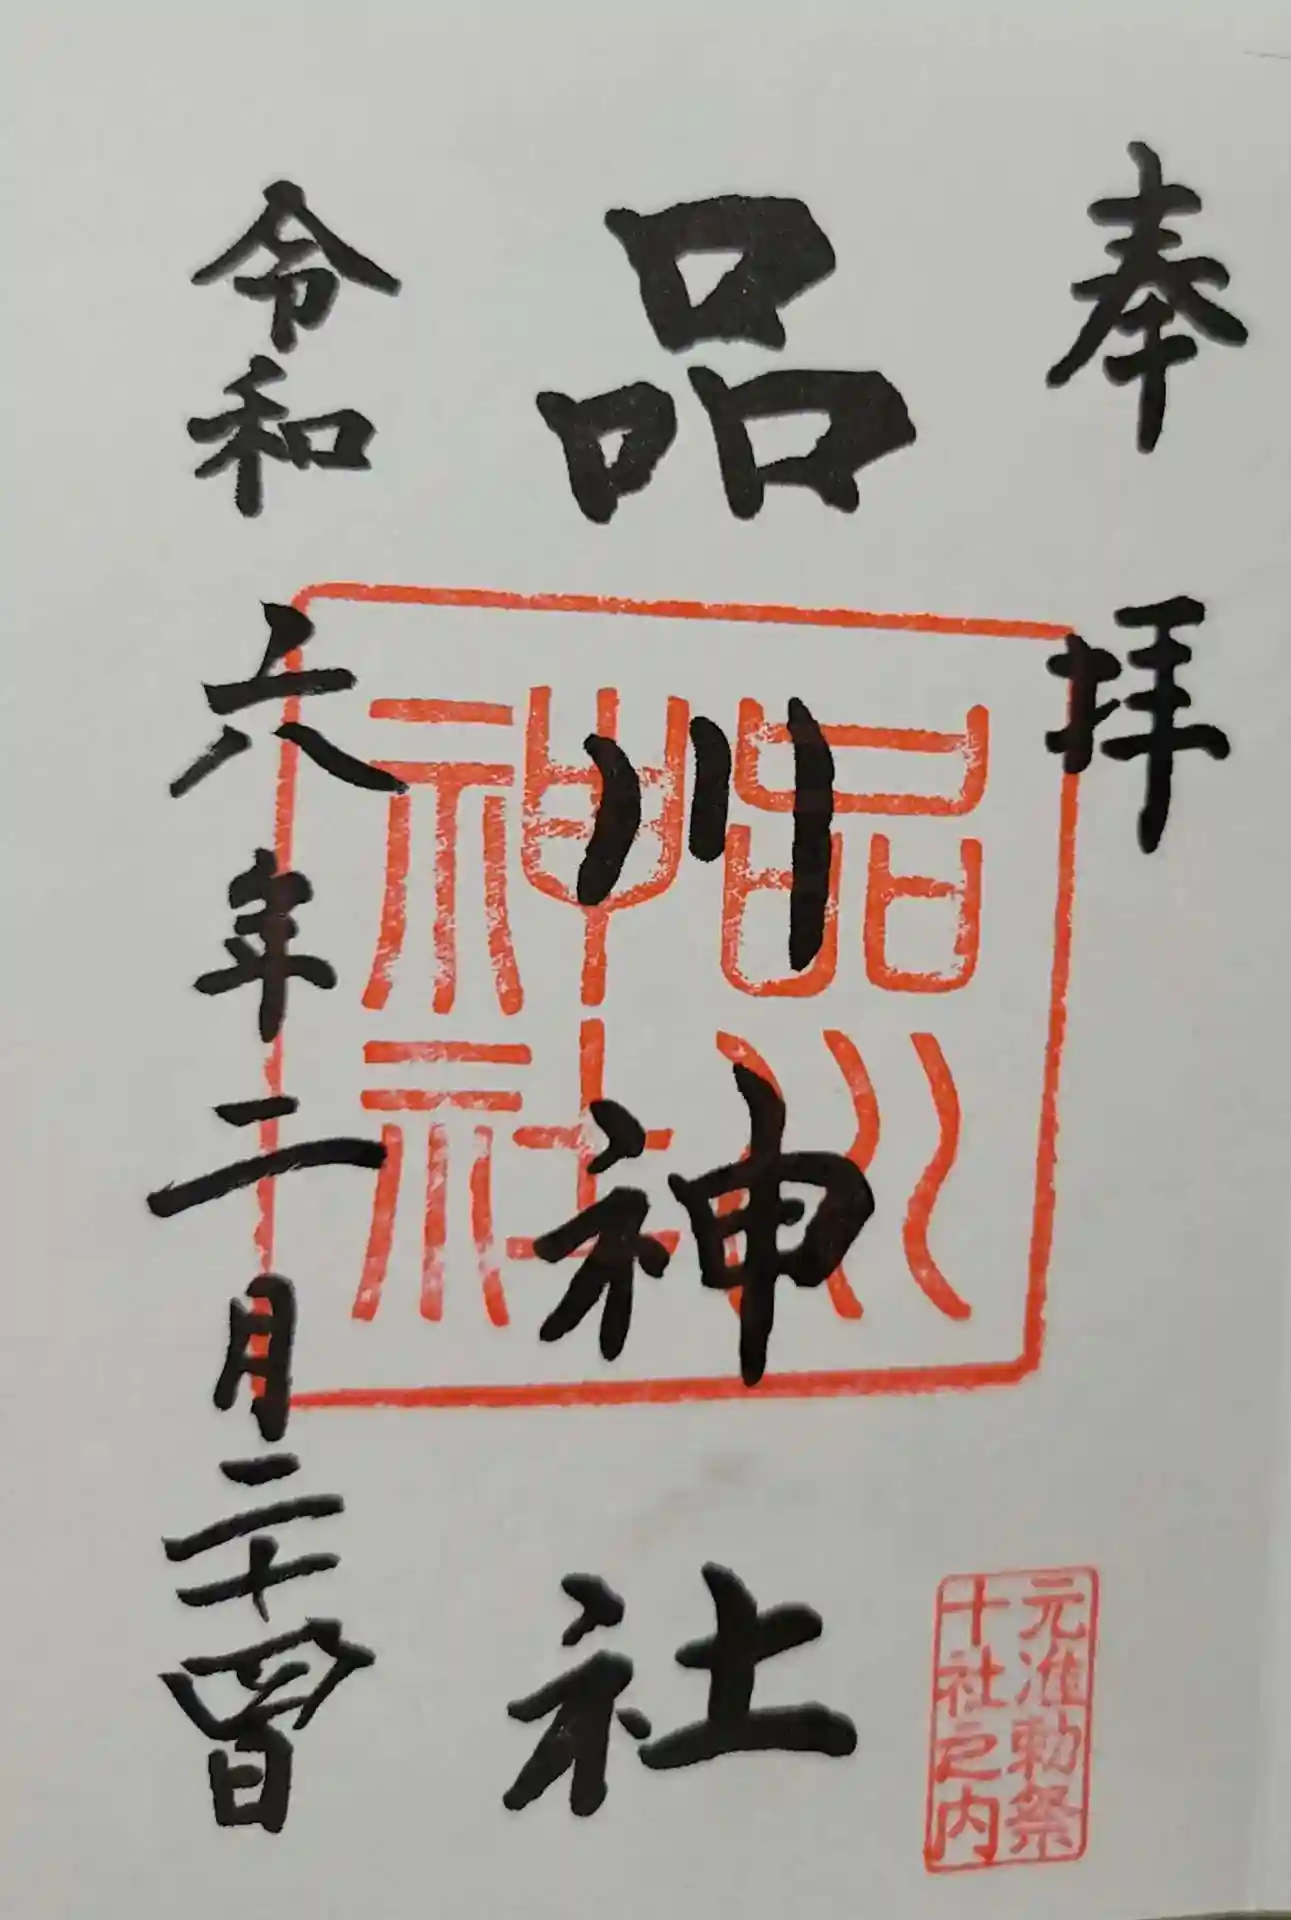 奉拝
品川神社
品川
神社
令和六年二月二十四日
元准勅祭
十社之内